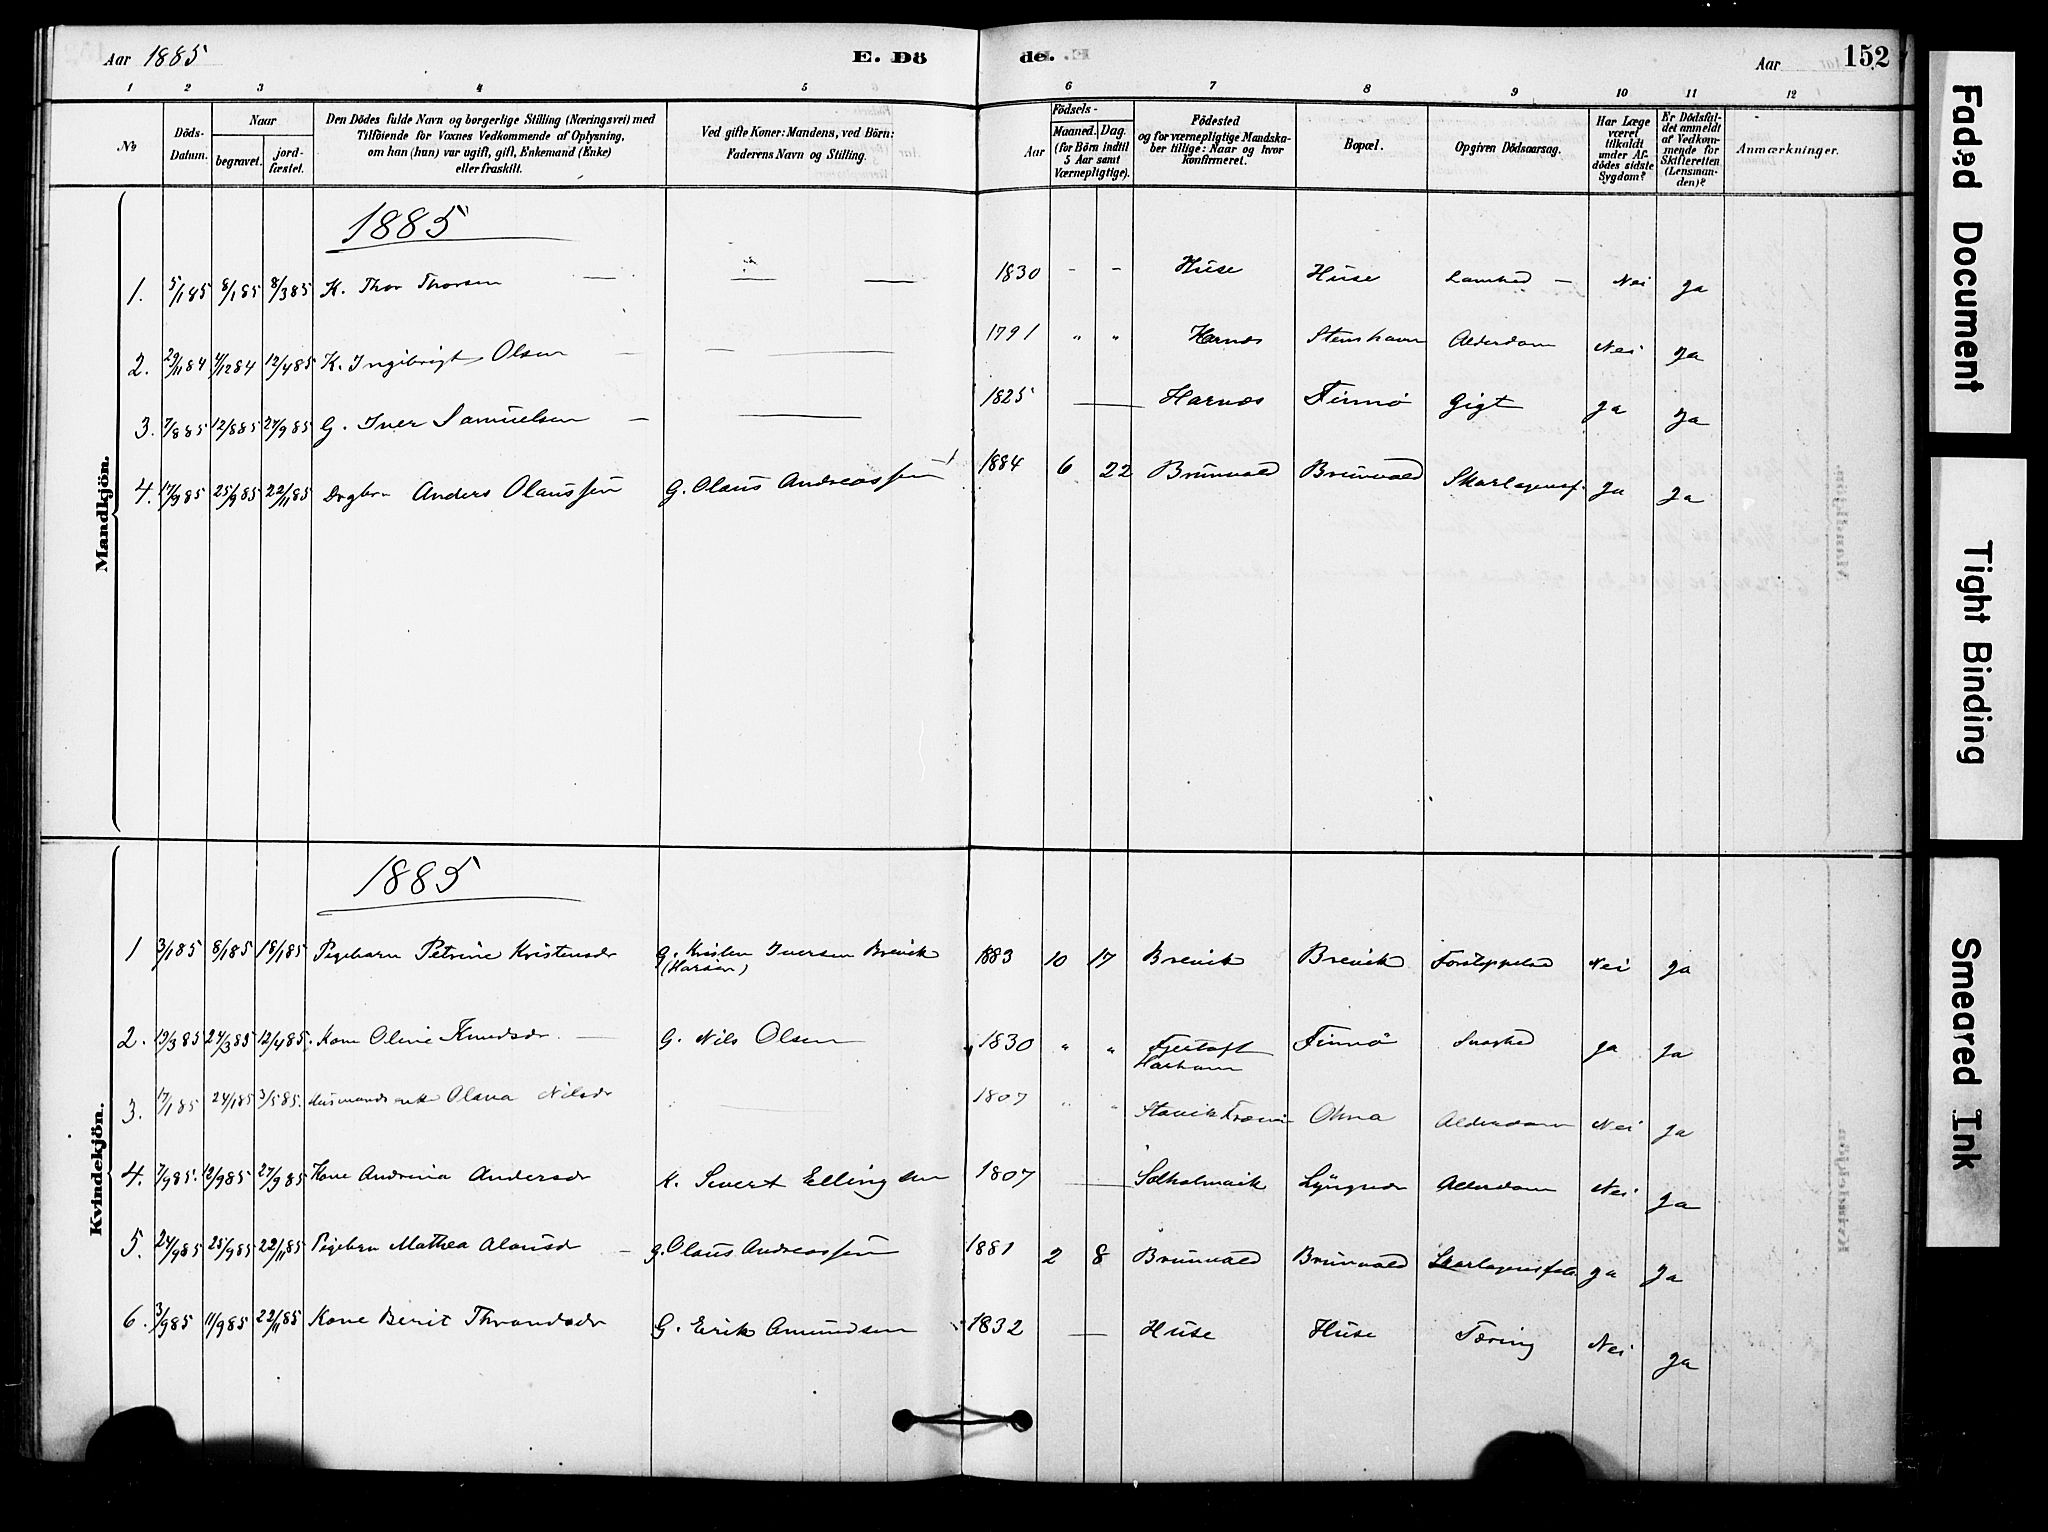 Aar 1885
E. Dö
de.
Aar
152
1 2 3 4 5 6 7 8 9 10 11 12
No
Döds-Datum.
Naar
begravet.
jord-fæstet.
Den Dödes fulde Navn og borgerlige Stilling (Næringsvei) med
Tilföiende for Voxnes Vedkommende af Oplysning,
om han (hun) var ugift, gift, Enkemand (Enke)
eller fraskilt.
Ved gifte Koner: Mandens, ved Börn:
Faderens Navn og Stilling.
Födsels-
Aar
Maaned.
Dag.
(for Börn indtil
5 Aar samt
Værnepligtige).
Födested
og for værnepligtige Mandska-
ber tillige: Naar og hvor
konfirmeret.
Bopæl.
Opgiven Dödsaarsag.
Har Læge
været
tilkaldt
under Af-
dödes sidste
Sygdom?
Er Dödsfal-
det anmeldt
af Vedkom-
mende for
Skifteretten
(Lensman-
den)?
Anmærkninger.
Mandkjön.
1885
1. 5/1 85 8/1 85 8/3 85 K. Thor Thorsen — — — 1830 - - Huse Huse Nei Ja
2. 29/11 84 4/12 84 12/4 85 K. Ingibrigt Olsen — — 1791 " " Harnæs Stenshavn Alderdom Nei Ja
3. 7/8 85 12/8 85 27/9 85 G. Iver Samuelsen — — 1825 — Harnæs Finnö Gigt Ja Ja
4. 17/9 85 25/9 85 22/11 85 Drgbrn Anders Olaussen G. Olaus Andreassen 1884 6 22 Brunvold Brunvold Skarlagensf. Ja Ja
Kvindekjön.
1885
1 3/1 85 8/1 85 18/1 85 Pigebarn Petrine Kristensdr G. Kristen Iversen Brevik 1883 10 17 Brevik Brevik Nei Ja
(Harsöen)
2. 19/3 85 24/3 85 12/4 85. Kone Oline Knudsdr — G. Nils Olsen 1830 " " Fjørtoft Finnö Ja Ja
Harham
3. 17/1 85 24/1 85 3/5 85. Husmandsenk Olava Nilsdr — 1807 " " Stavik Ohna Alderdom Nei Ja
4. 7/9 85. 12/9 85 27/9 85 Kone Andrina Andersdr K. Sivert Ellingsen 1807 — Solholmvik Alderdom Nei Ja
5. 24/9 85 25/9 85 22/11 85 Pigebrn Mathea Olausd — G. Olaus Andreassen 1881 2 8 Brunvold Brunvold Skarlagensfeb. Ja Ja
6. 3/9 85 11/9 85 22/11 85 Kone Berit Throndsdr G. Erik Amundsen 1832 — Huse Huse Tæring Nei Ja
Faded Document
Tight Binding
Smeared Ink